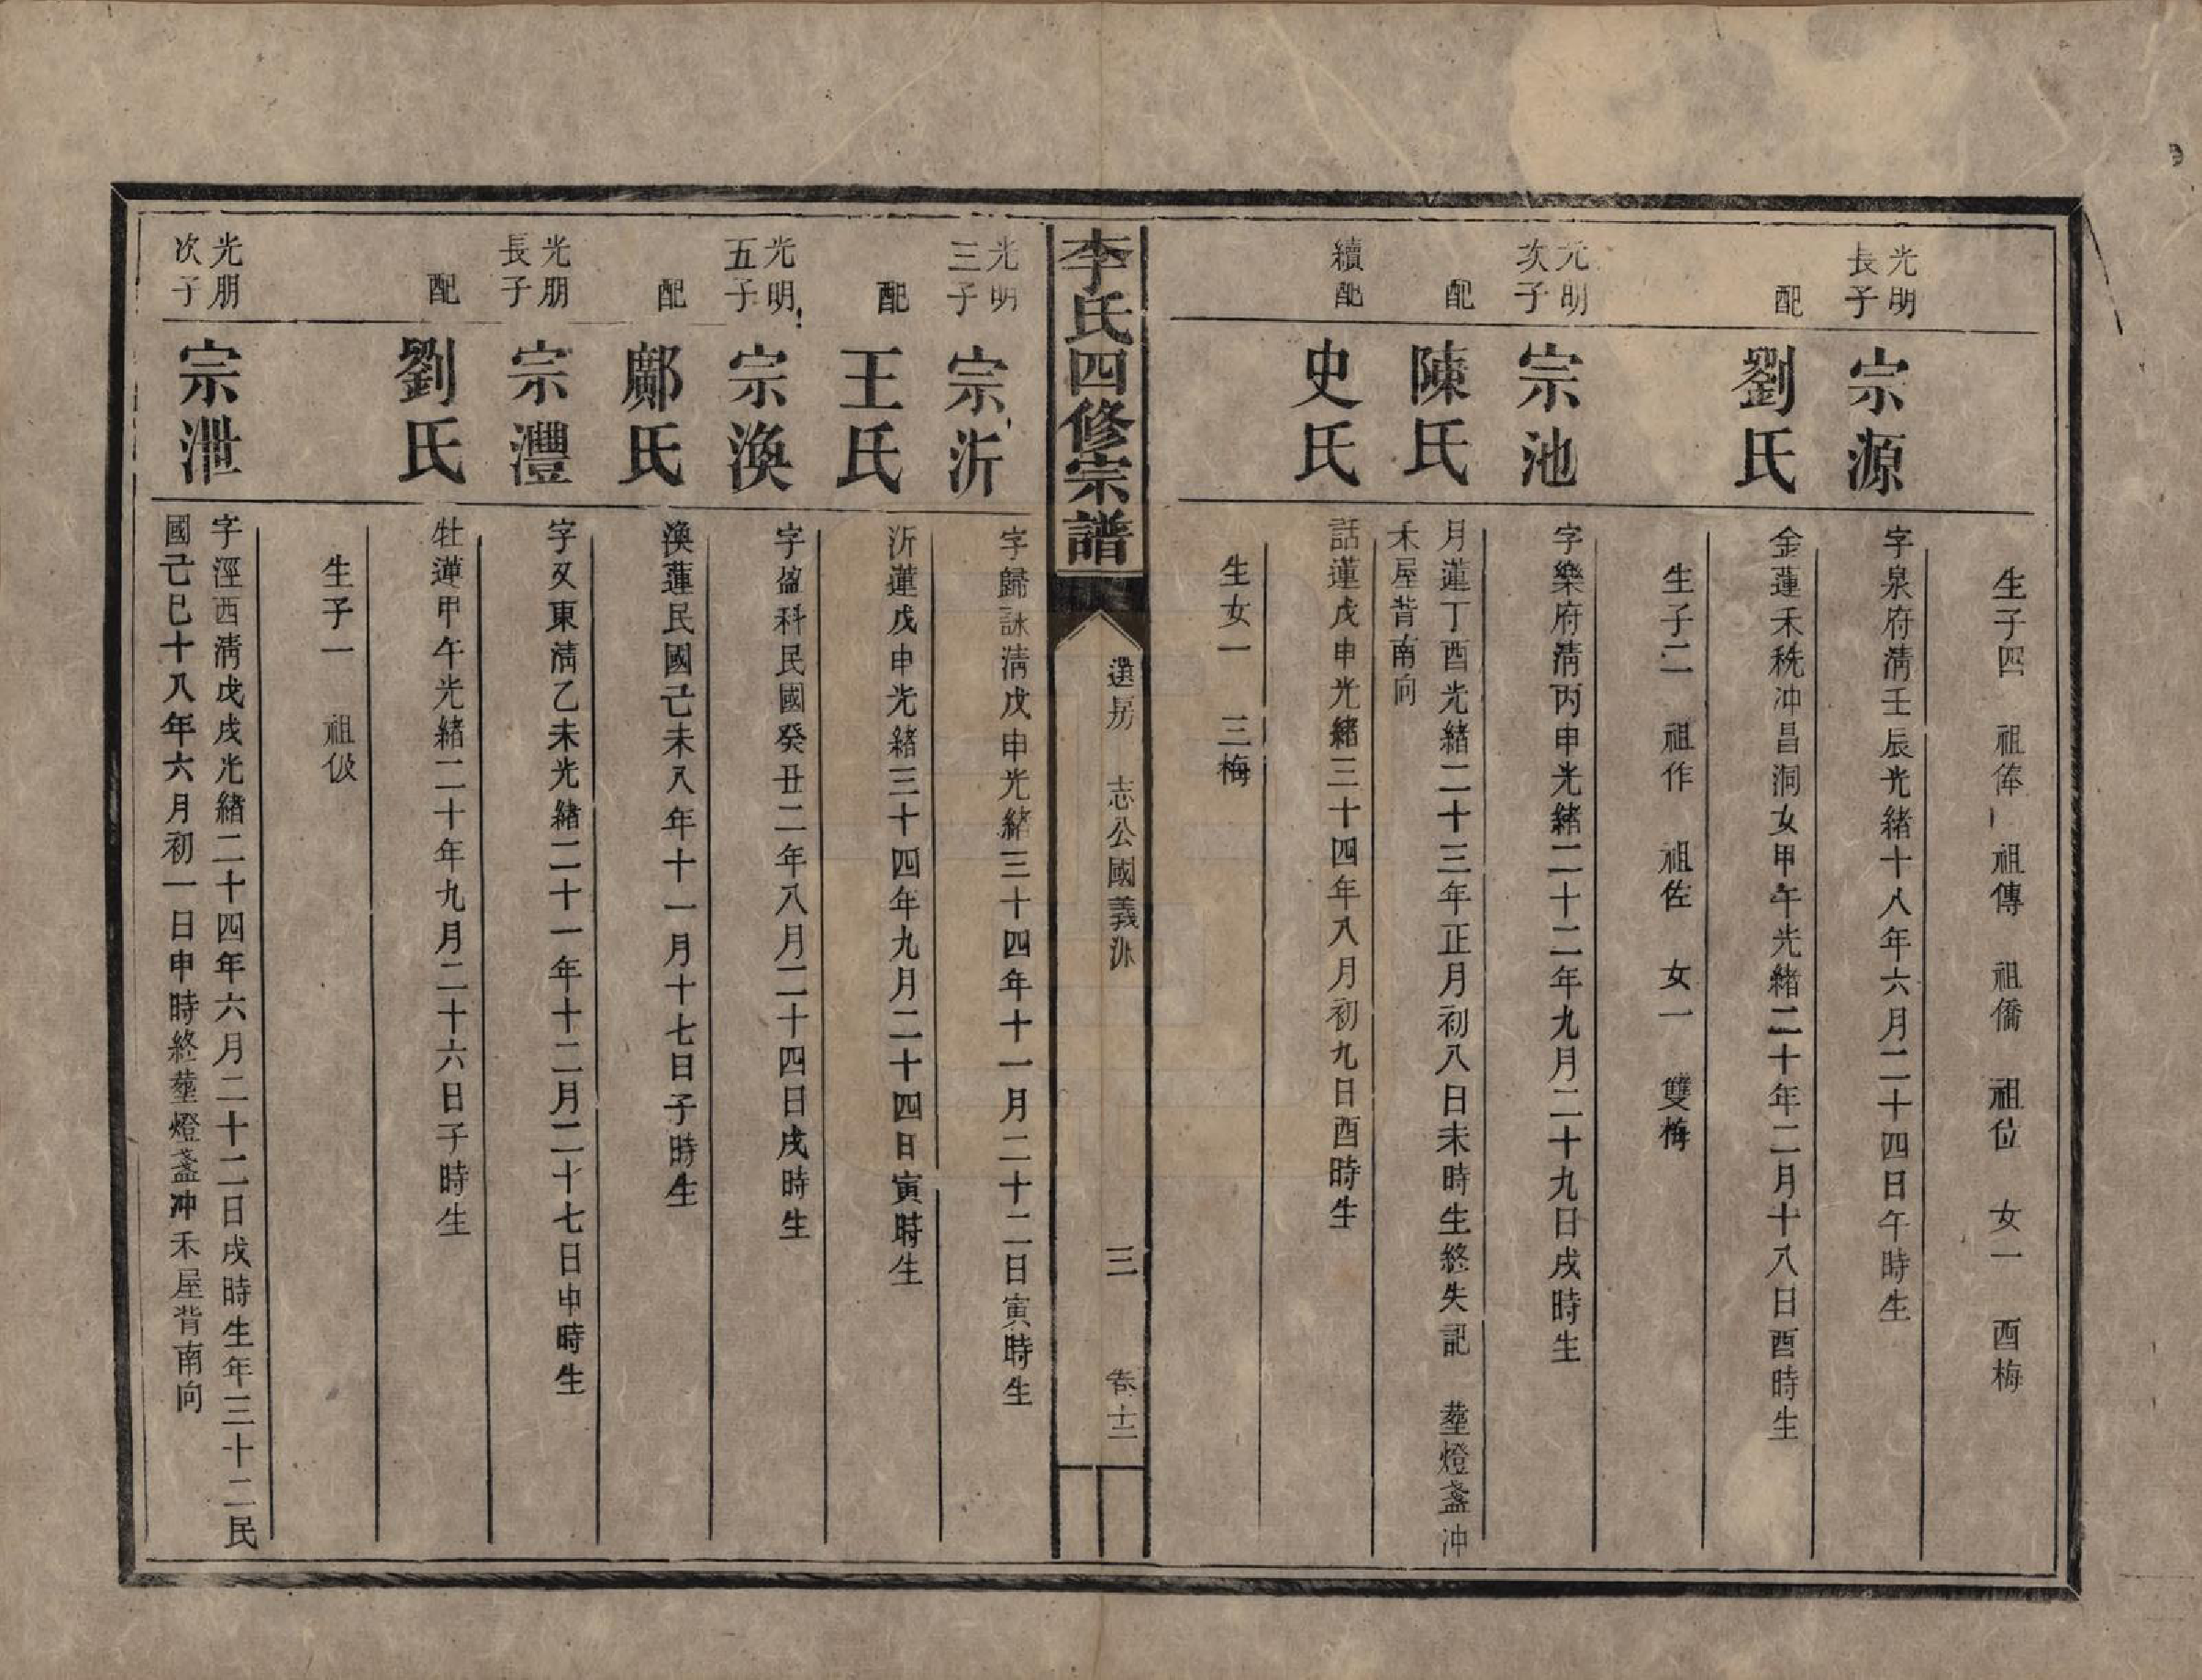 生子四 祖俸 祖傳 祖僑 祖位 女一 酉梅
光明
長子
宗源
字泉府淸壬辰光緒十八年六月二十四日午時生
配
劉氏
金蓮禾秈冲昌洞女甲午光緒二十年二月十八日酉時生
生子二 祖作 祖佐 女一 雙梅
光明
次子
宗池
字樂府淸丙申光緒二十二年九月二十九日戌時生
配
陳氏
月蓮丁酉光緒二十三年正月初八日未時生終失記 塟燈盞冲
禾屋背南向
續配
史氏
話蓮戊申光緒三十四年八月初九日酉時生
生女一 三梅
李氏四修宗譜
選房 志公國義派
三
卷十三
光明
三子
宗沂
字歸詠淸戊申光緒三十四年十一月二十二日寅時生
配
王氏
沂蓮戊申光緒三十四年九月二十四日寅時生
光明
五子
宗渙
字盈科民國癸丑二年八月二十四日戌時生
配
鄺氏
渙蓮民國己未八年十一月十七日子時生
光朋
長子
宗灃
字又東淸乙未光緒二十一年十二月二十七日申時生
配
劉氏
牡蓮甲午光緒二十年九月二十六日子時生
生子一 祖伋
光朋
次子
宗泄
字涇西淸戊戌光緒二十四年六月二十二日戌時生年三十二民
國己巳十八年六月初一日申時終塟燈盞冲禾屋背南向